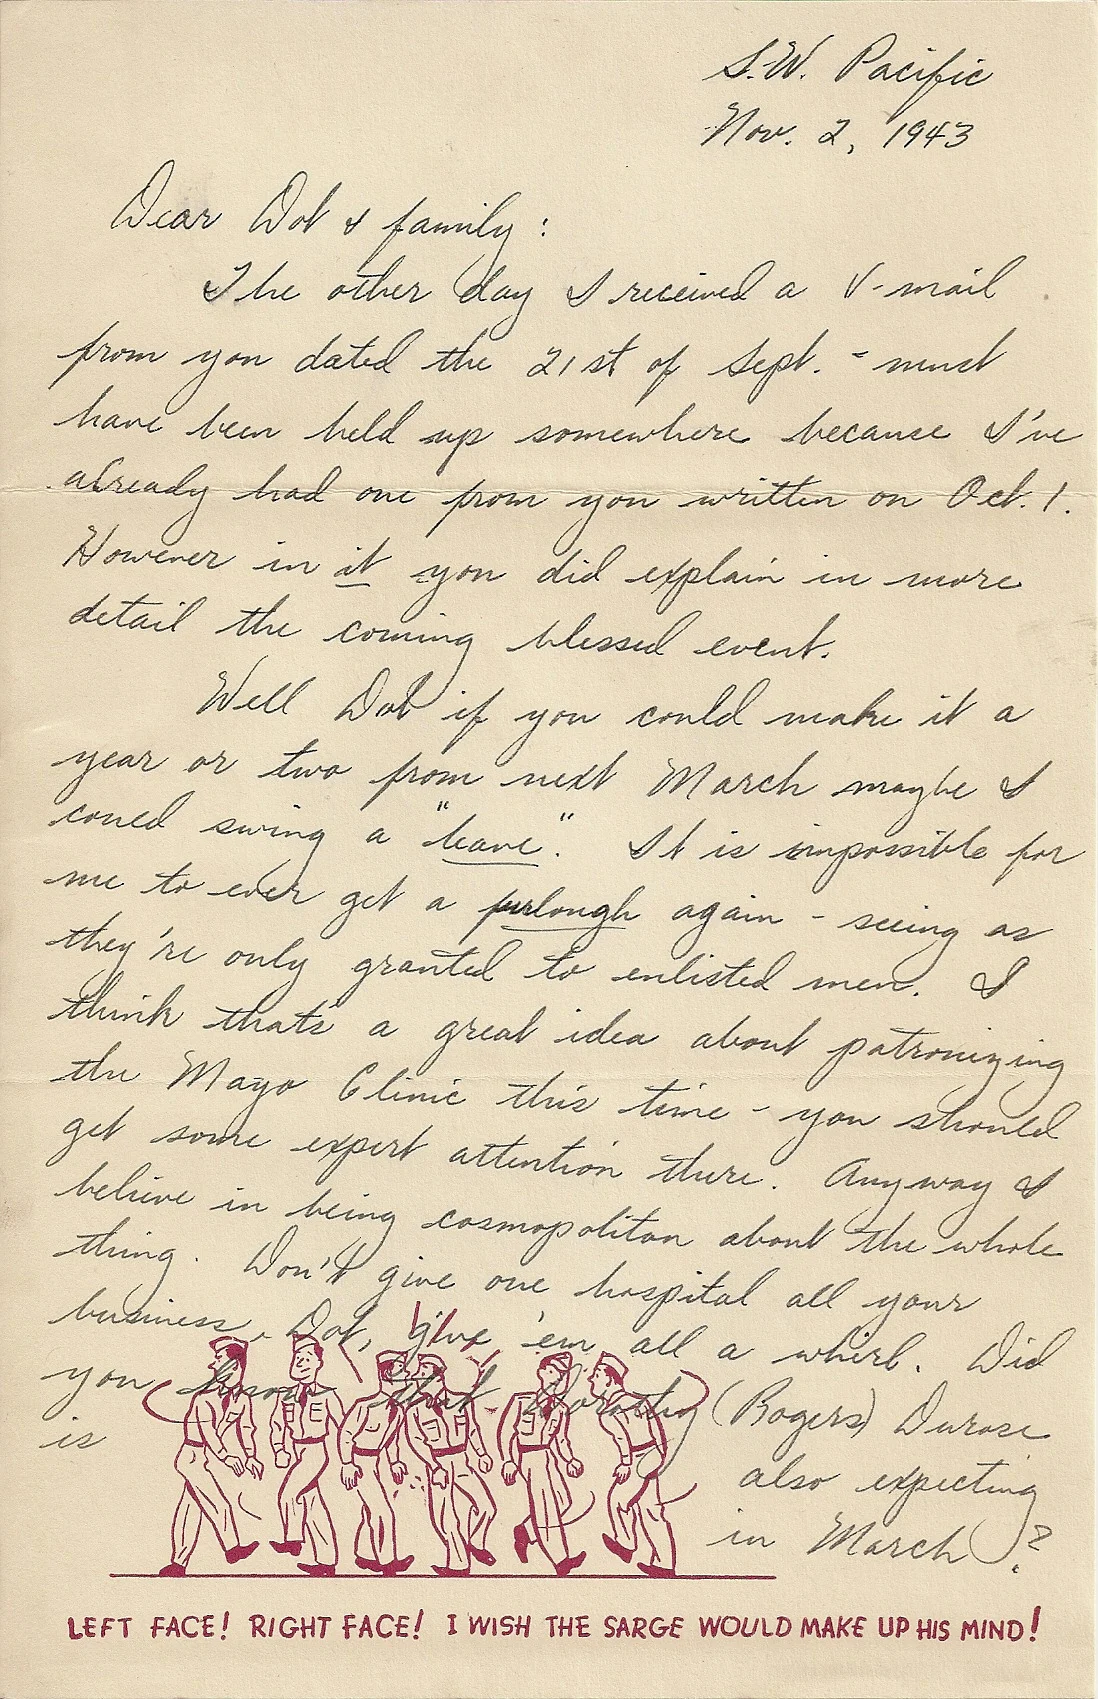 S.W. Pacific
Nov. 2, 1943
Dear Dot & family:
The other day I received a V-mail
from you dated the 21st of Sept. - must
have been held up somewhere because I've
already had one from you written on Oct. 1.
However in it you did explain in more
detail the coming blessed event.
Well Dot if you could make it a
year or two from next March maybe I
coued swing a "leave". It is impossible for
me to ever get a furlough again - seeing as
they're only granted to enlisted men. I
think that's a great idea about patronizing
the Mayo Clinic this time - you should
get some expert attention there. Anyway I
believe in being cosmopolitan about the whole
thing. Don't give one hospital all your
business, Dot, give 'em all a whirl. Did
you know that Dorothy (Rogers) Durose
is
also expecting
in March?
LEFT FACE! RIGHT FACE! I WISH THE SARGE WOULD MAKE UP HIS MIND!